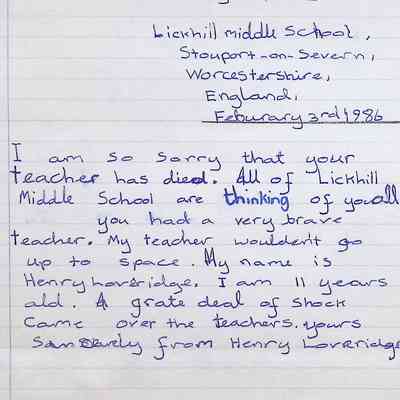 Lickhill middle School,
Stouport-on-Severn,
Worcestershire,
England,
Feburary 3rd 1986
I am so sorry that your
teacher has died. All of Lickhill
Middle School are thinking of you all
you had a very brave
teacher. My teacher wouldent go
up to space. My name is
Henry Loveridge. I am 11 years
old. A grate deal of shock
came over the teachers. yours
from Henry Loveridge